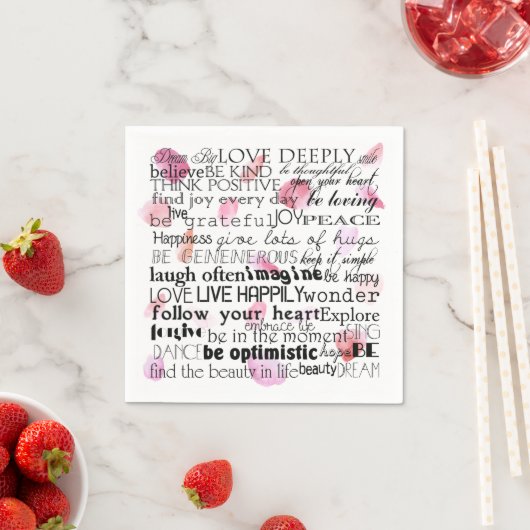 Dream Big LOVE DEEPLY smile
believe BE KIND be thoughtful
THINK POSITIVE open your heart
find joy every day be loving
live
be grateful JOY PEACE
Happiness give lots of hugs
BE GENENEROUS keep it simple
laugh often imagine be happy
LOVE LIVE HAPPILY wonder
follow your heart Explore
forgive embrace life SING
be in the moment
DANCE be optimistic hope BE
find the beauty in life beauty DREAM